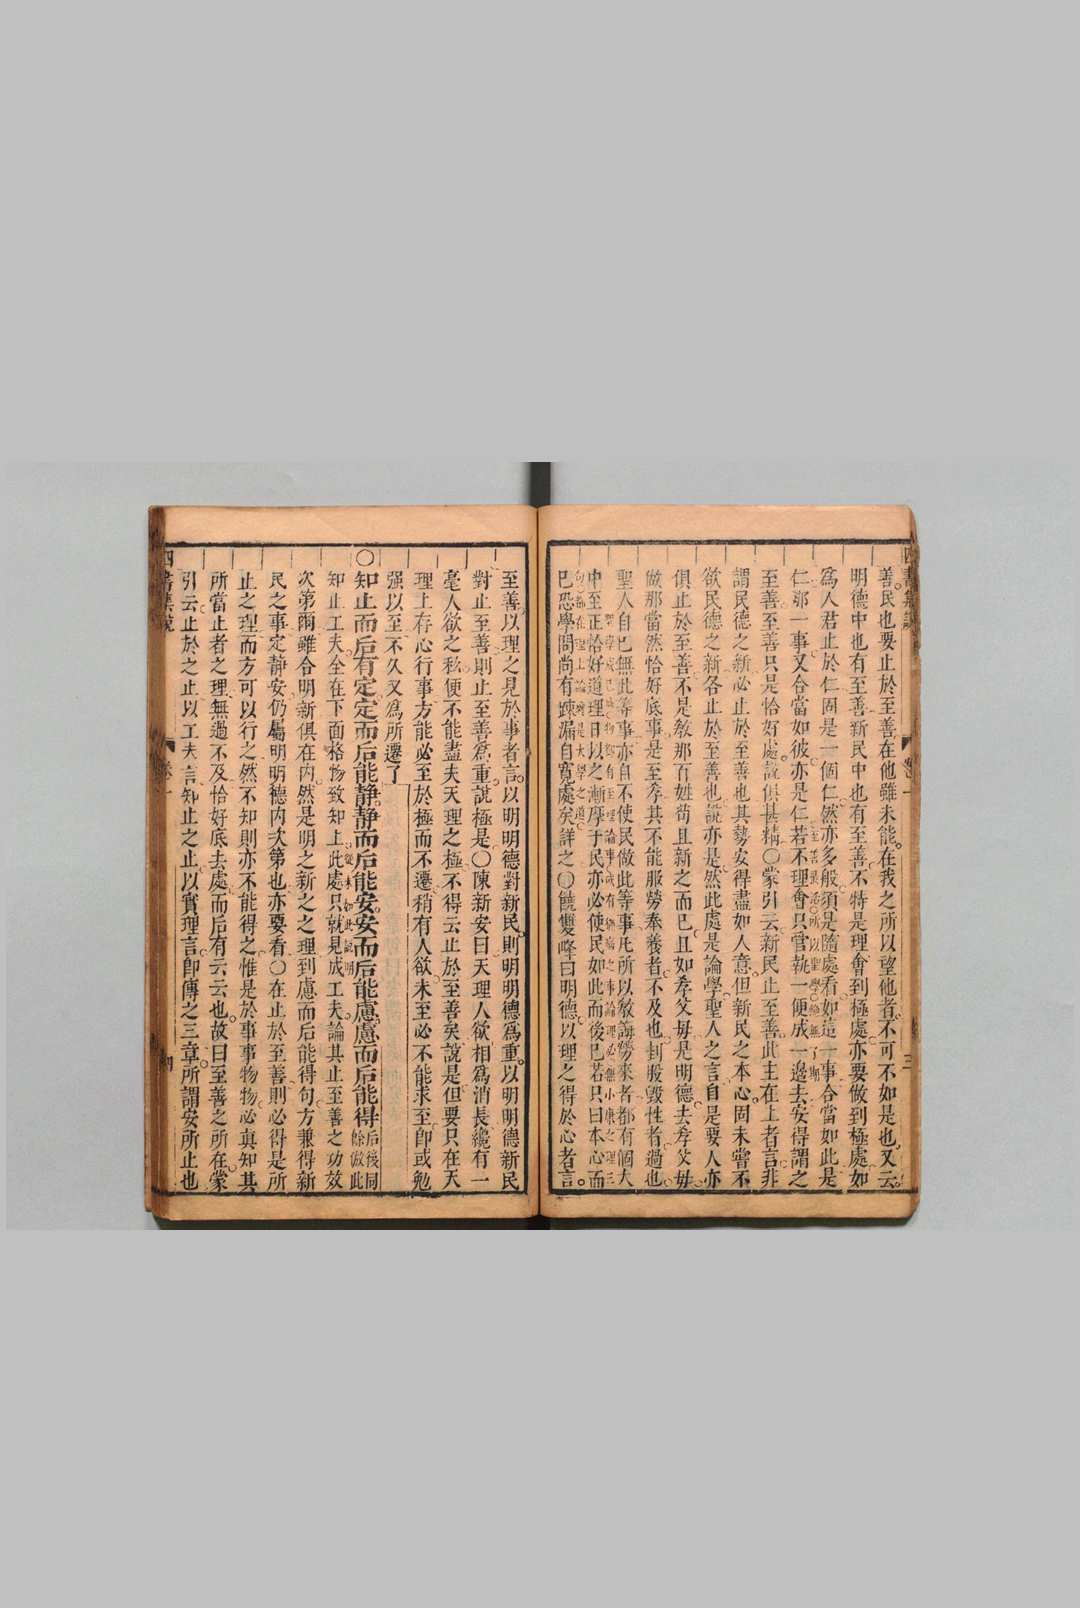 善民也要止於至善在他雖未能在我之所以望他者不可不如是也又云
明德中也有至善新民中也有至善不特是理會到極處亦要做到極處如
爲人君止於仁固是一個仁然亦多般須是隨處看如這一事合當如此是
仁那一事又合當如彼亦是仁若不理會只管執一便成一邊去安得謂之
至善至善只是恰好處說俱甚精○蒙引云新民止至善此主在上者言非
謂民德之新必止於至善也其勢安得盡如人意但新民之本心固未嘗不
欲民德之新各止於至善也說亦是然此處是論學聖人之言自是要人亦
俱止於至善不是教那百姓苟且新之而已且如孝父母是明德去孝父母
做那當然恰好底事是至孝其不能服勞奉養者不及也封股毀性者過也
聖人自己無此等事亦自不使民做此等事凡所以教誨勞來者都有個大
中至正恰好道理日以之漸摩于民亦必使民如此而後已若只曰本心而
已恐學問尚有踈漏自寬處矣詳之○饒雙峰曰明德以理之得於心者言
至善以理之見於事者言以明明德對新民則明明德爲重以明明德新民
對止至善則止至善爲重說極是○陳新安曰天理人欲相爲消長纔有一
毫人欲之私便不能盡夫天理之極不得云止於至善矣說是但要只在天
理上存心行事方能必至於極而不遷稍有人欲未至必不能求至卽或勉
强以至不久又爲所遷了
○知止而后有定定而后能靜靜而后能安安而后能慮慮而后能得后後同餘倣此
知止工夫全在下面格物致知上此處只就見成工夫論其止至善之功效
次第爾雖合明新俱在內然是明之新之之理到慮而后能得句方兼得新
民之事定靜安仍屬明明德內次第也亦要看○在止於至善則必得是所
止之理而方可以行之然不知則亦不能得之惟是於事事物物必真知其
所當止者之理無過不及恰好底去處而后有云云也故曰至善之所在蒙
引云止於之止以工夫言知止之止以實理言卽傳之三章所謂安所止也